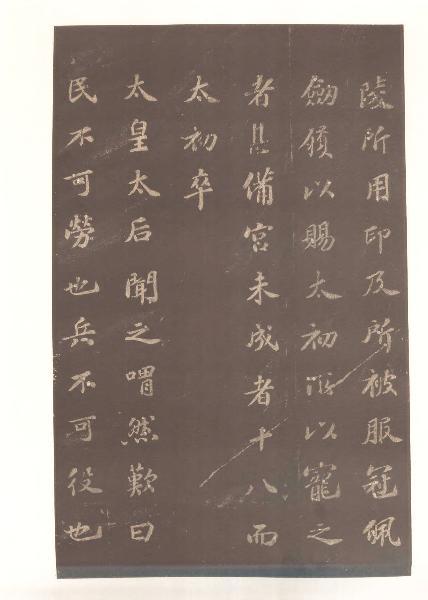 陵所用印及所被服冠佩
劒履以賜太初所以寵之
者甚備宮未成者十八而
太初卒
太皇太后聞之喟然歎曰
民不可勞也兵不可役也